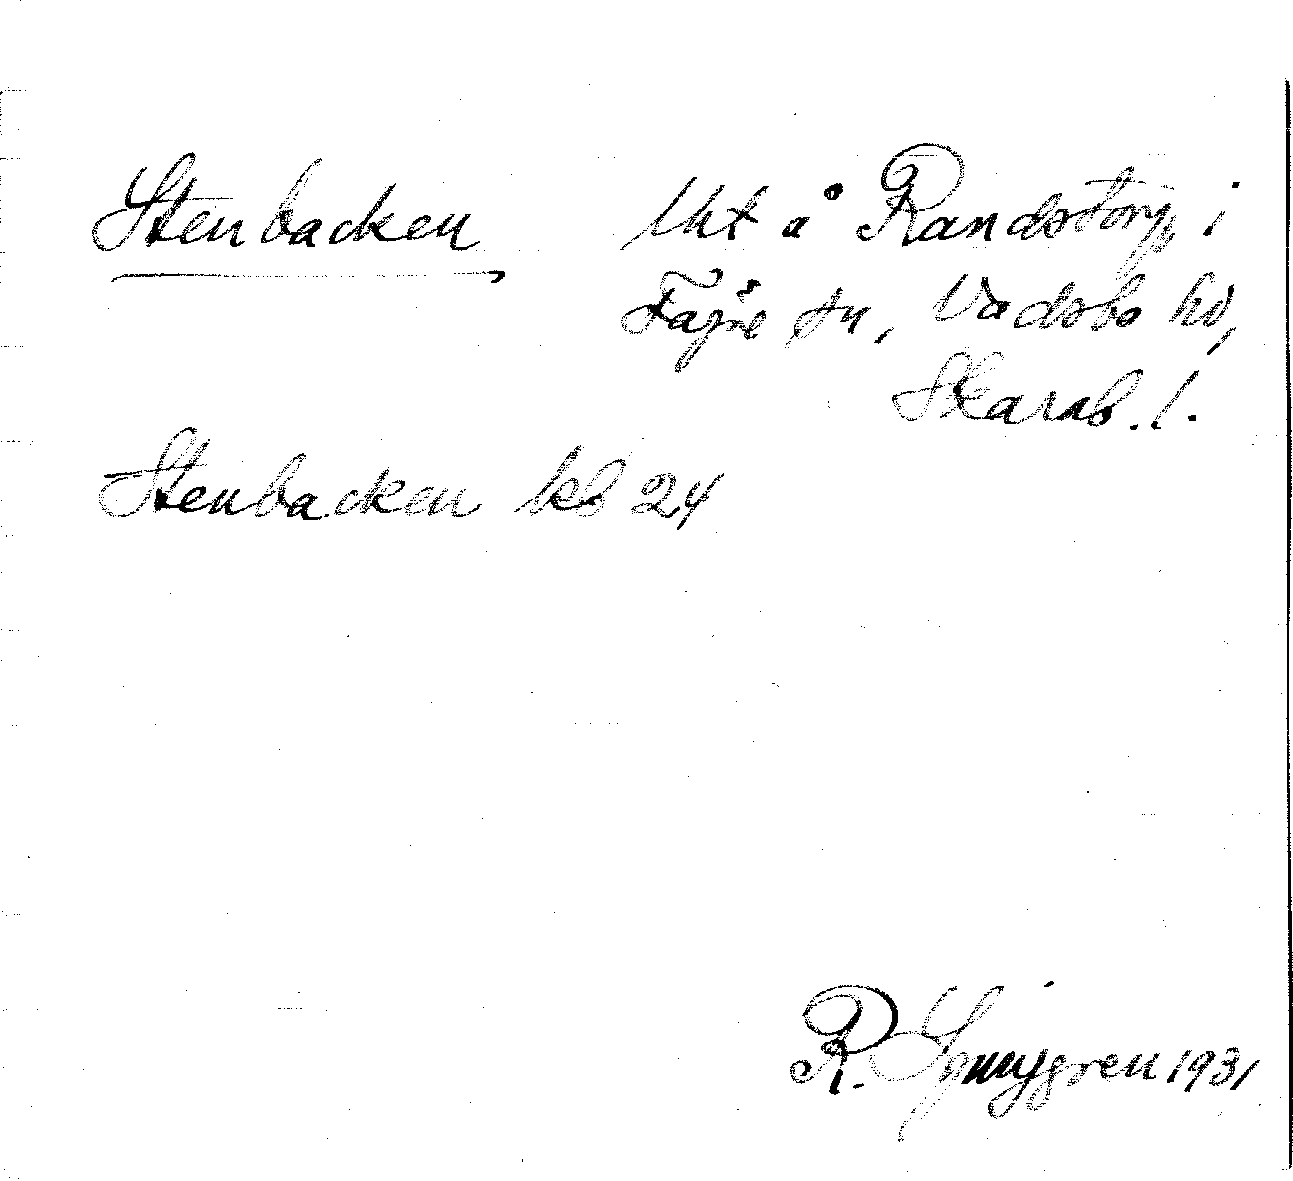 Stenbacken Uht å Randstorp i
Fägre sn, Vadsbo hd,
Skarab. l.
Stenbacken kb 24
R. Ljunggren 1931